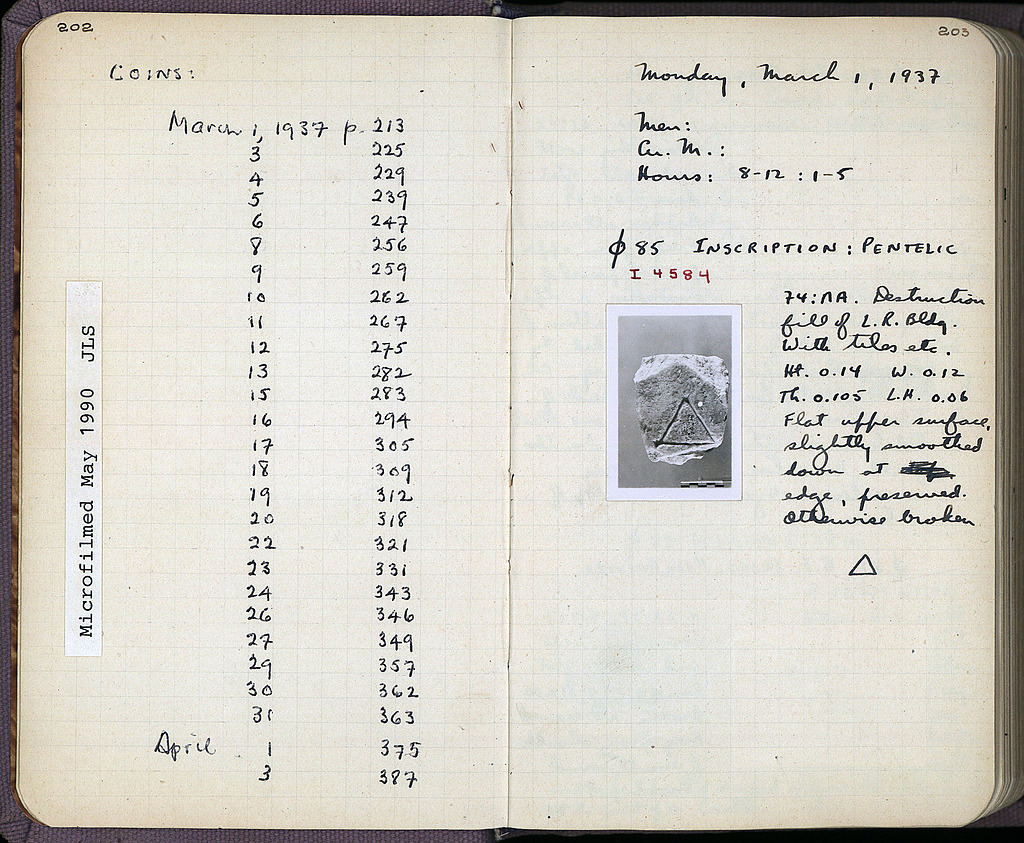 202
COINS:
March 1, 1937 p. 213
3 225
4 229
5 239
6 247
8 256
9 259
10 262
11 267
12 275
13 282
15 283
16 294
17 305
18 309
19 312
20 318
22 321
23 331
24 343
26 346
27 349
29 357
30 362
31 363
April 1 375
3 387
Microfilmed May 1990 JLS
203
Monday, March 1, 1937
Men:
Cu. M.:
Hours: 8-12 : 1-5
ϕ 85 INSCRIPTION: PENTELIC
I 4584
74:ΛΑ. Destruction
fill of L.R. Bldg.
With tiles etc.
Ht. 0.14 W. 0.12
Th. 0.105 L.H. 0.06
Flat upper surface,
slightly smoothed
down at
edge, preserved.
Otherwise broken
Δ